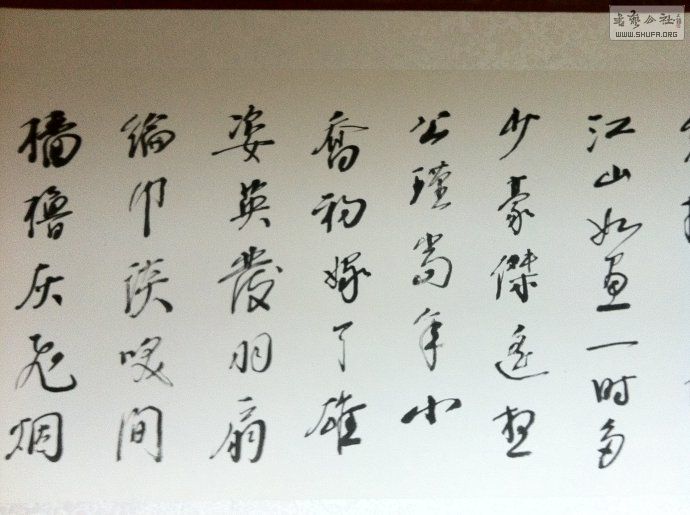 江山如画一时多
少豪傑遥想
公瑾當年小
喬初嫁了雄
姿英發羽扇
綸巾談咲间
檣櫓灰飞烟
书艺公社
WWW.SHUFA.ORG